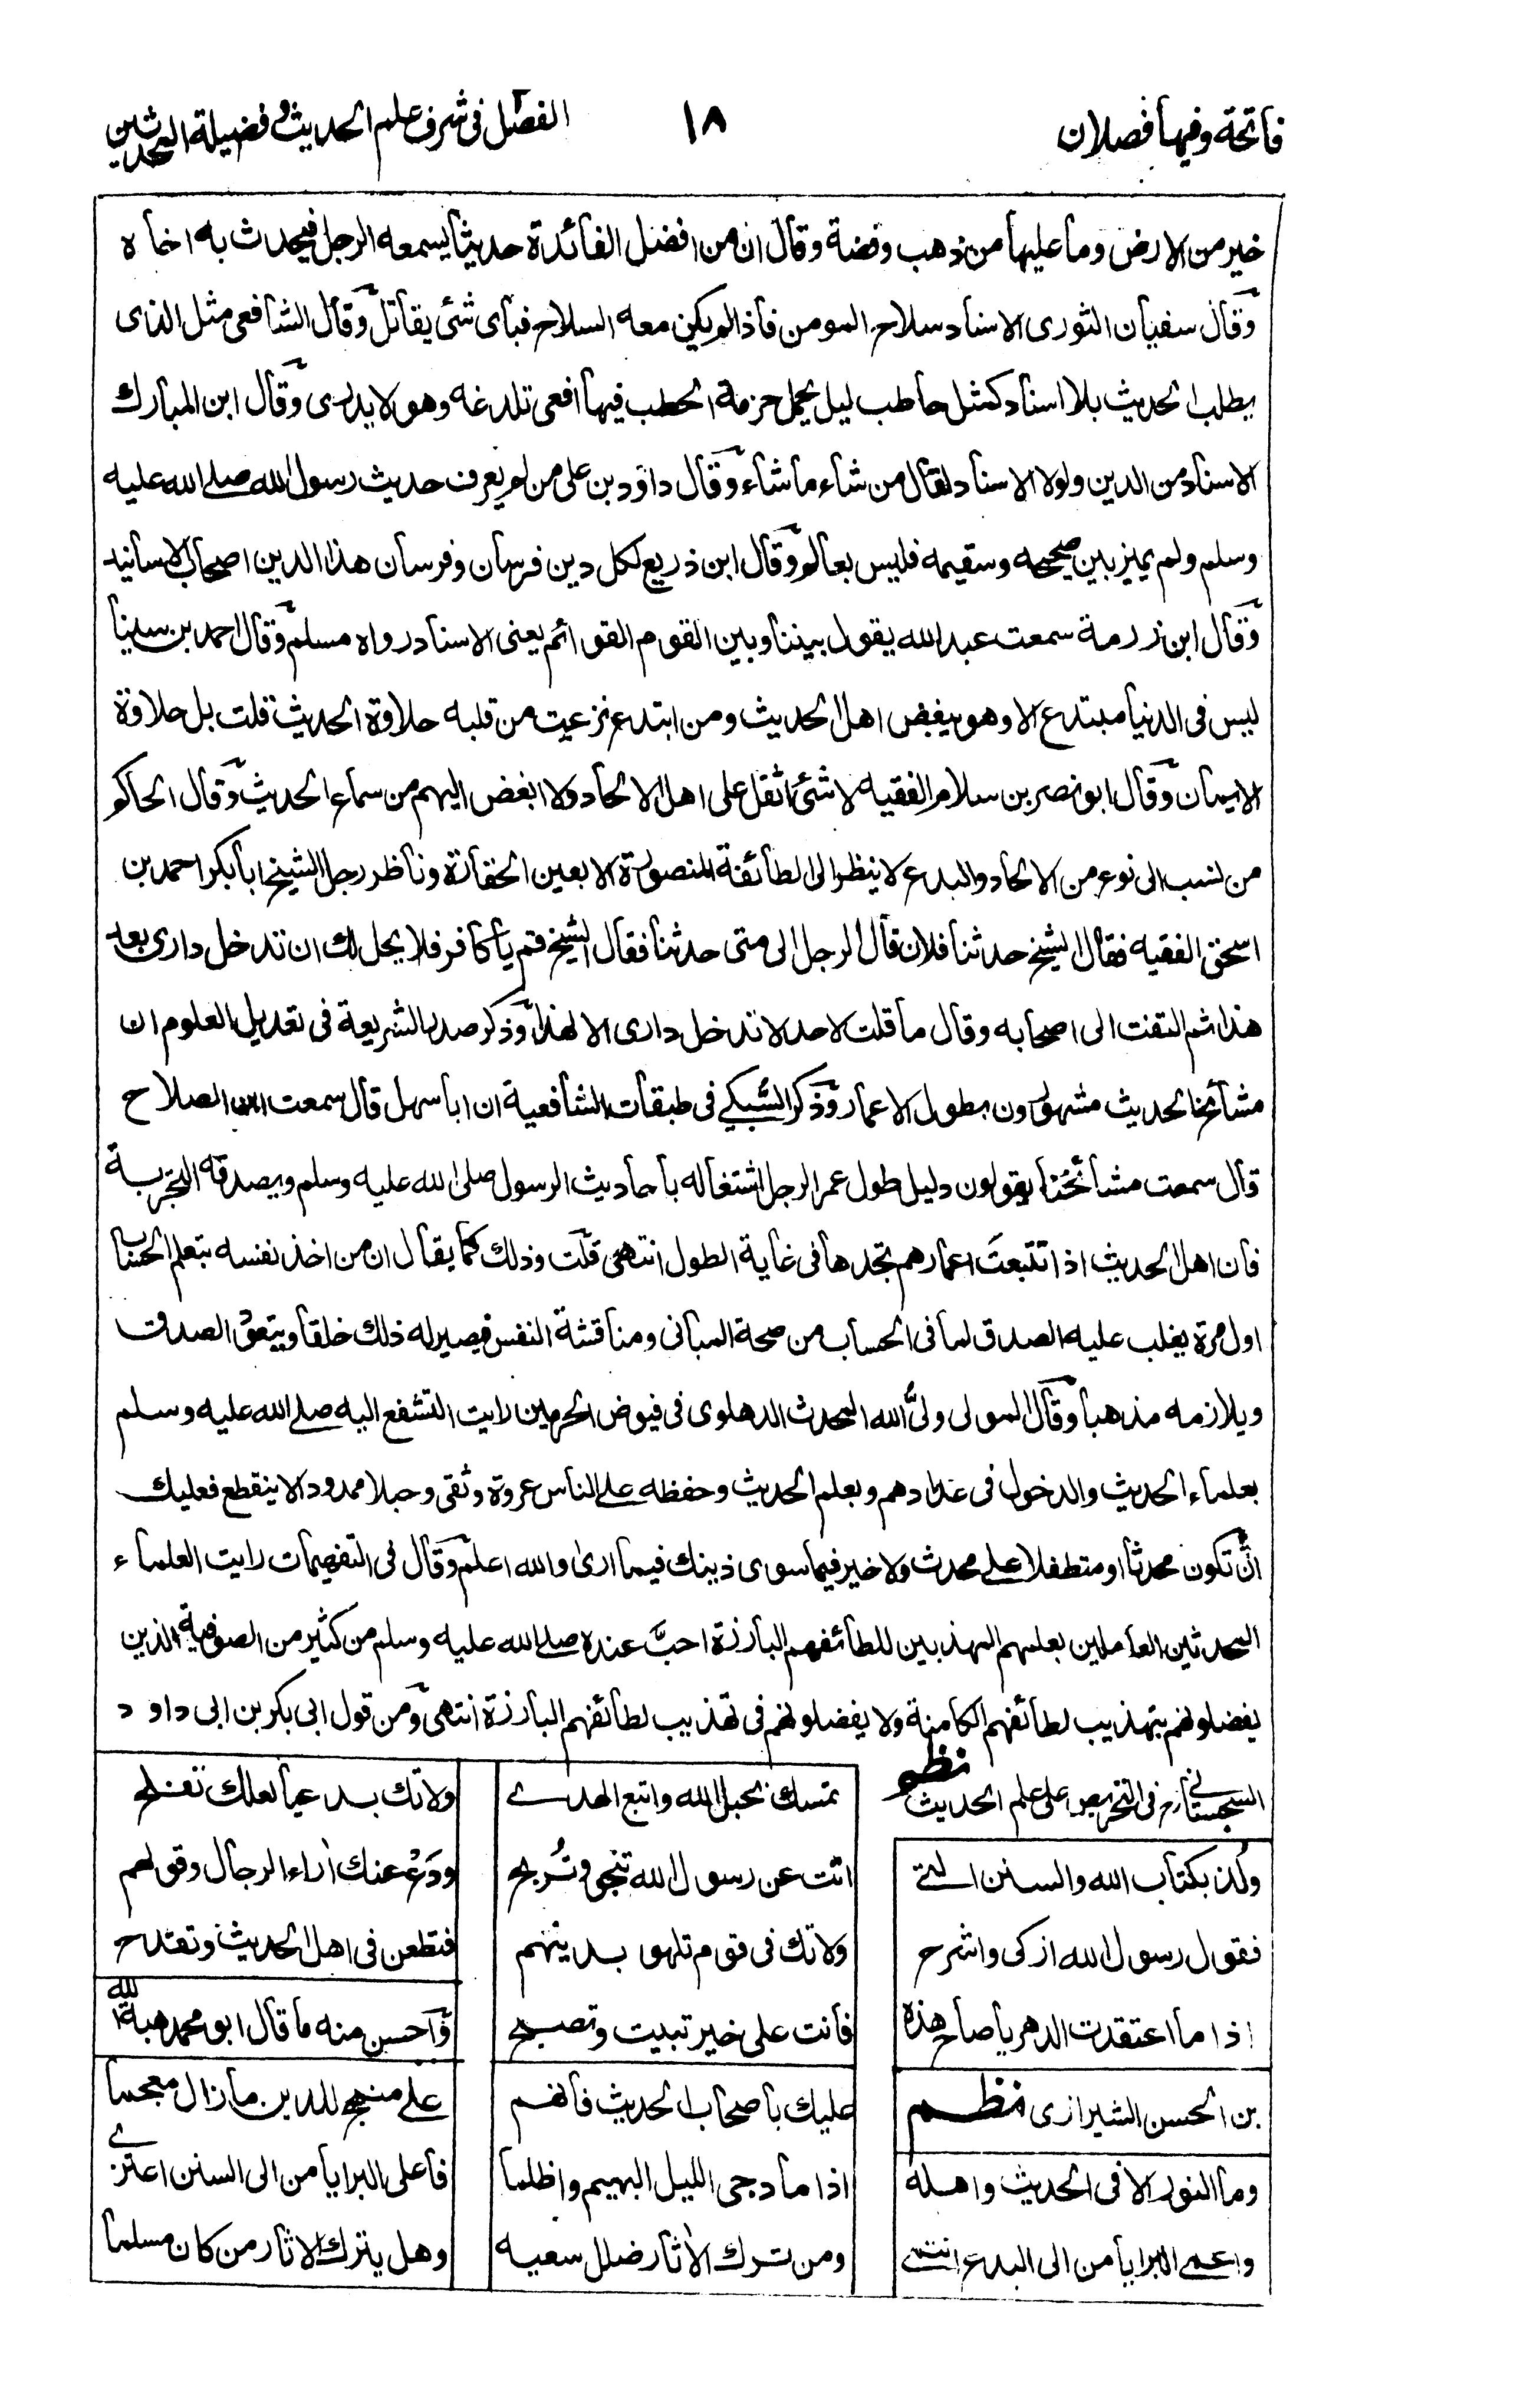 فاتحة وفيها فصلان
١٨
الفصل فى شرف علم الحديث و فضيلة المحدثين
خير من الارض وما عليها من ذهب وفضة وقال ان من افضل الفائدة حديثا يسمعه الرجل فيحدث به اخاه
وقال سفيان الثورى الاسناد سلاح المومن فاذا لم يكن معه السلاح فبأى شئ يقاتل وقال الشافعى مثل الذى
يطلب الحديث بلا اسناد كمثل حاطب ليل يحمل حزمة الحطب فيها افعى تلدغه وهو لا يدرى وقال ابن المبارك
الاسناد من الدين ولولا الاسناد لقال من شاء ما شاء وقال داود بن على من لم يعرف حديث رسول الله صلے الله عليه
وسلم ولم يميز بين صحيحه وسقيمه فليس بعالم وقال ابن ذريع لكل دين فرسان وفرسان هذا الدين اصحاب الاسانيد
وقال ابن زرمة سمعت عبد الله يقول بيننا وبين القوم القوائم يعنى الاسناد رواه مسلم وقال احمد بن سنان
ليس فى الدنيا مبتدع الا وهو يبغض اهل الحديث ومن ابتدع نزعت من قلبه حلاوة الحديث قلت بل حلاوة
الايمان وقال ابو نصر بن سلام الفقيه لا شئ اثقل على اهل الالحاد ولا ابغض اليهم من سماع الحديث وقال الحاكم
من نسب الى نوع من الالحاد والبدع لا ينظر الى الطائفة المنصورة الا بعين الحقارة وناظر رجل الشيخ ابا بكر احمد بن
اسحق الفقيه فقال الشيخ حدثنا فلان قال الرجل الى متى حدثنا فقال الشيخ قم يا كافر فلا يحل لك ان تدخل دارى بعد
هذا ثم التفت الى اصحابه وقال ما قلت لاحد لا تدخل دارى الا لهذا وذكر صدر الشريعة فى تعديل العلوم ان
مشائخ الحديث مشهورون بطول الاعمار وذكر السُّبكے فى طبقات الشافعية ان ابا سهل قال سمعت ابن الصلاح
قال سمعت مشائخنا يقولون دليل طول عمر الرجل اشتغاله باحاديث الرسول صلى الله عليه وسلم ويصدقه التجربة
فان اهل الحديث اذا تتبعت اعمارهم تجدها فى غاية الطول انتهى قلت وذلك كما يقال ان من اخذ نفسه بتعلم الحساب
اول مرة يغلب عليه الصدق لما فى الحساب من صحة المبانى ومناقشة النفس فيصير له ذلك خلقا ويتعود الصدق
ويلازمه مذهبا وقال المولى ولىُّ الله المحدث الدهلوى فى فيوض الحرمين رايت التشفع اليه صلے الله عليه وسلم
بعلماء الحديث والدخول فى عدادهم وبعلم الحديث وحفظه علے الناس عروة وثقى وحبلا ممدودا لا ينقطع فعليك
انْ تكون محدثا او متطفلا علے محدث ولا خير فيما سوى ذينك فيما ارى والله اعلم وقال فى التفهيمات رايت العلماء
المحدثين العاملين بعلمهم المهذبين للطائفهم البارزة احبَّ عنده صلے الله عليه وسلم من كثير من الصوفية الذين
يفضلونهم بتهذيب لطائفهم الكامنة ولا يفضلونهم فى تهذيب لطائفهم البارزة انتهى ومن قول ابى بكر بن ابى داود
السجستانے رح فى التحريص على علم الحديث نظم
تمسك بحبل الله واتبع الهدے
ولا تك بدعيا لعلك تفلح
ولُذ بكتاب الله والسنن التے
اتت عن رسول الله تنجى وتُربح
ودَعْ عنك اراء الرجال وقولهم
فقول رسول الله ازكى واشرح
ولا تك فى قوم تلهو بدينهم
فتطعن فى اهل الحديث وتقدح
اذا ما اعتقدت الدهر يا صاح هذه
فانت على خير تبيت وتصبح
واحسن منه ما قال ابو محمد هبة الله
بن الحسن الشيرازى نظم
عليك باصحاب الحديث فانهم
علے منهج للدين ما زال معجما
وما النور الا فى الحديث واهله
اذا ما دجى الليل البهيم واظلما
فاعلى البرايا من الى السنن اعتزے
واعمے البرايا من الى البدع انتمے
ومن ترك الاثار ضلل سعيه
وهل يترك الاثار من كان مسلما